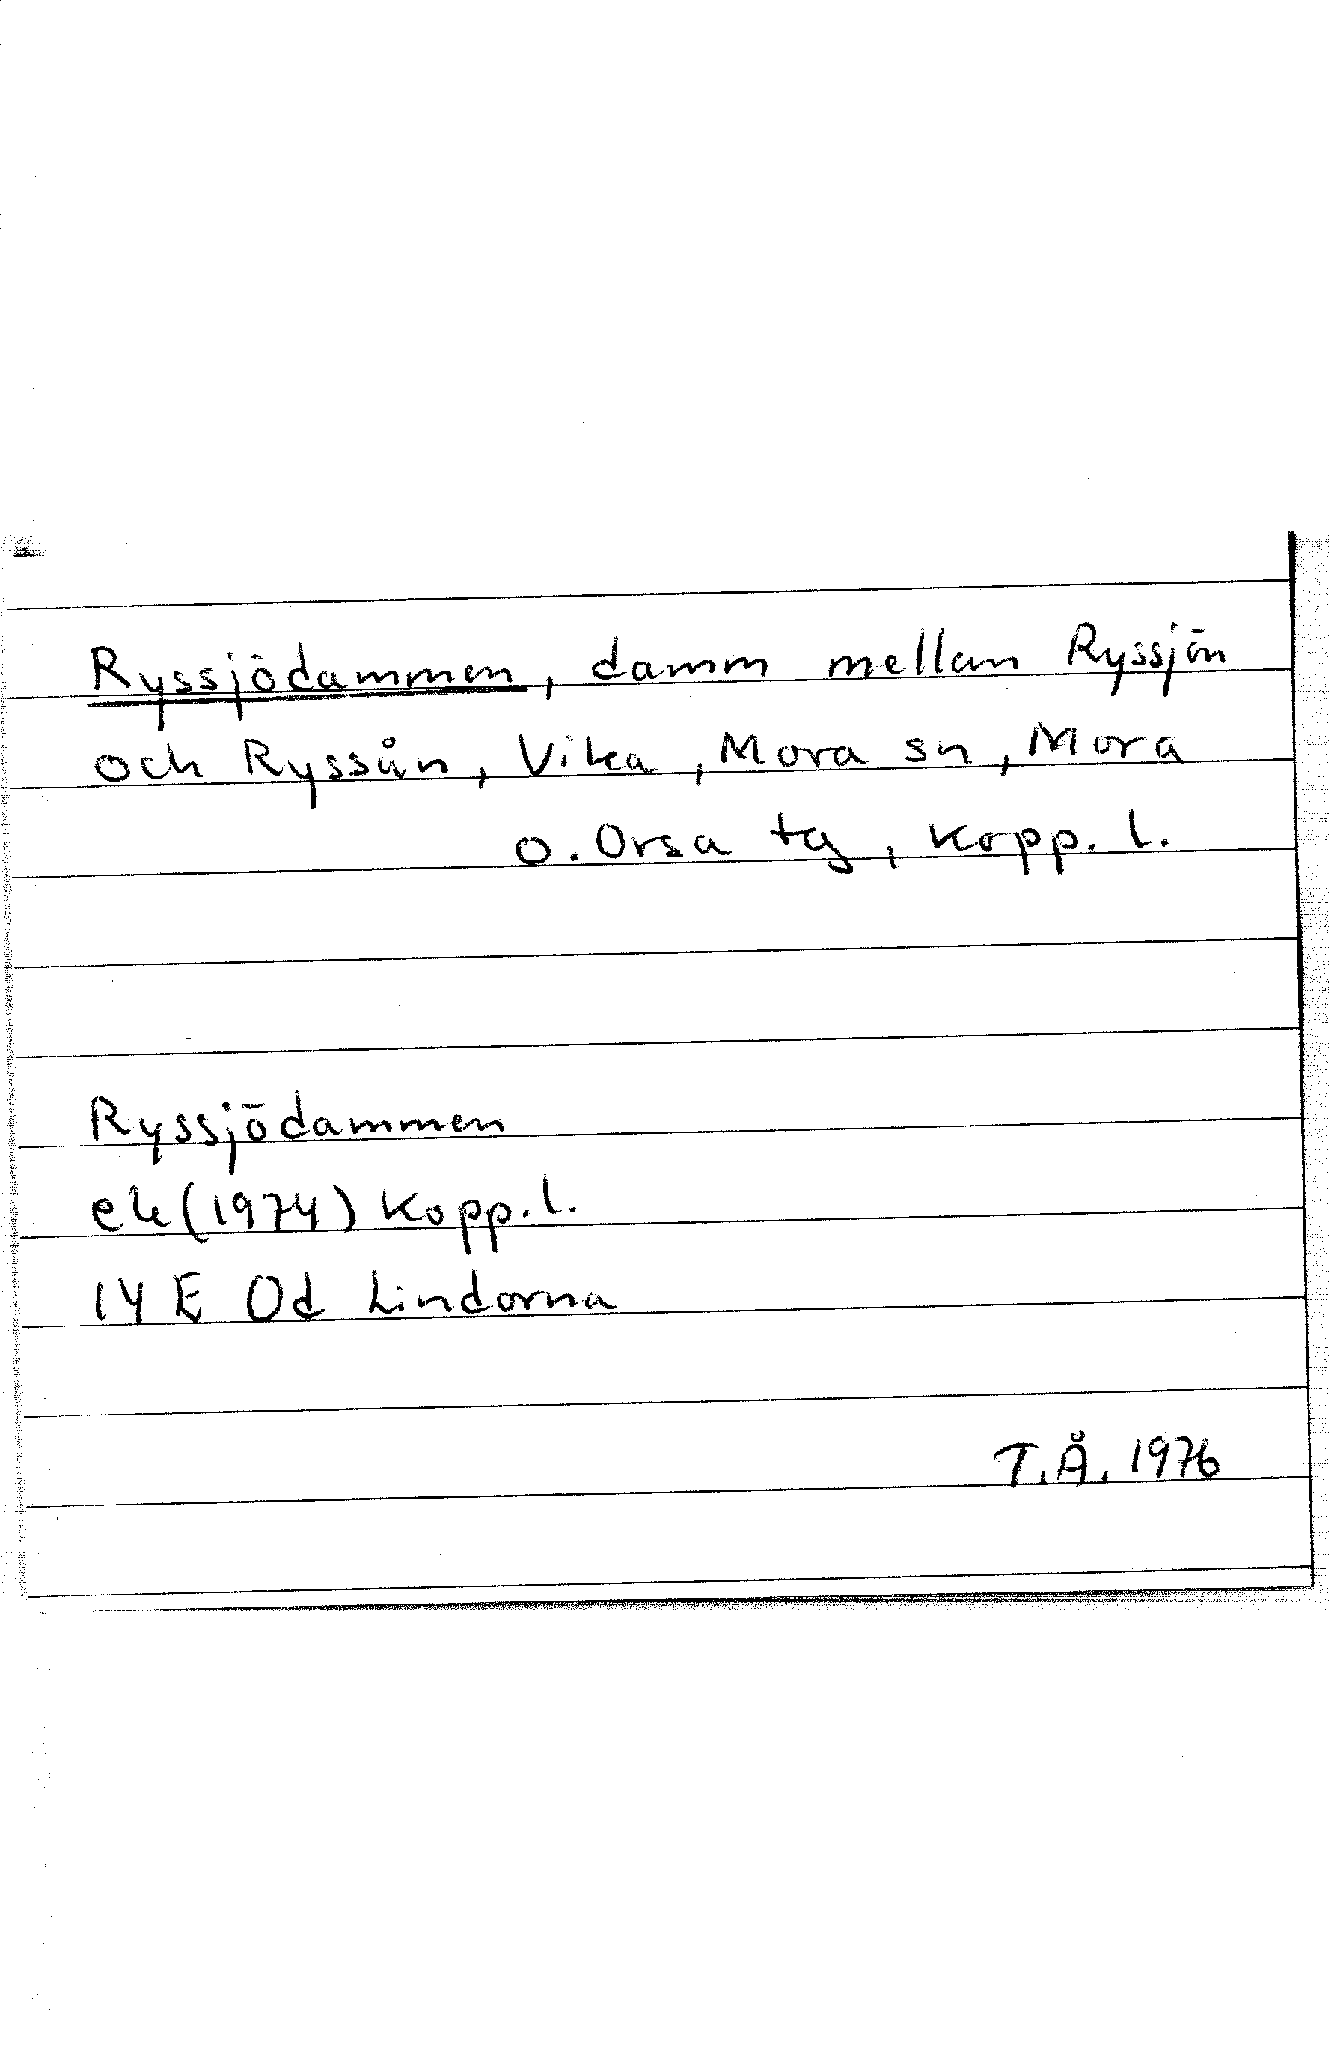 Ryssjödammen, damm mellan Ryssjön
och Ryssån, Vika, Mora sn, Mora
o. Orsa tg, Kopp. l.
Ryssjödammen
ek (1974) Kopp. l.
14 E 0d Lindorna
T.Å. 1976